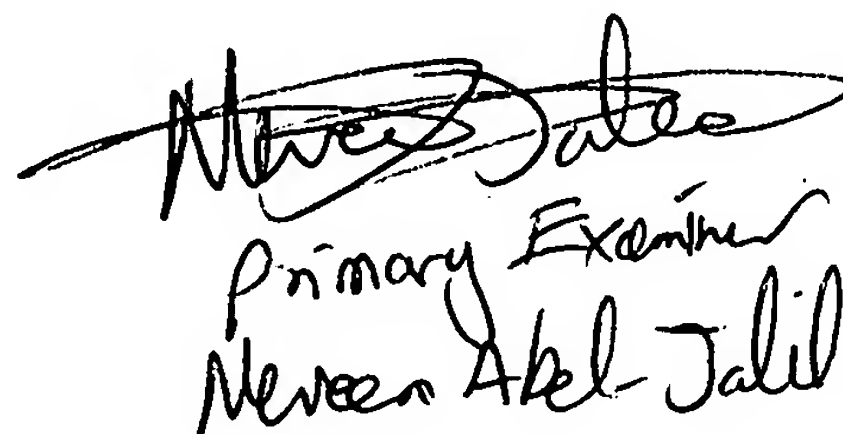 Primary Examiner
Neveen Abel-Jalil